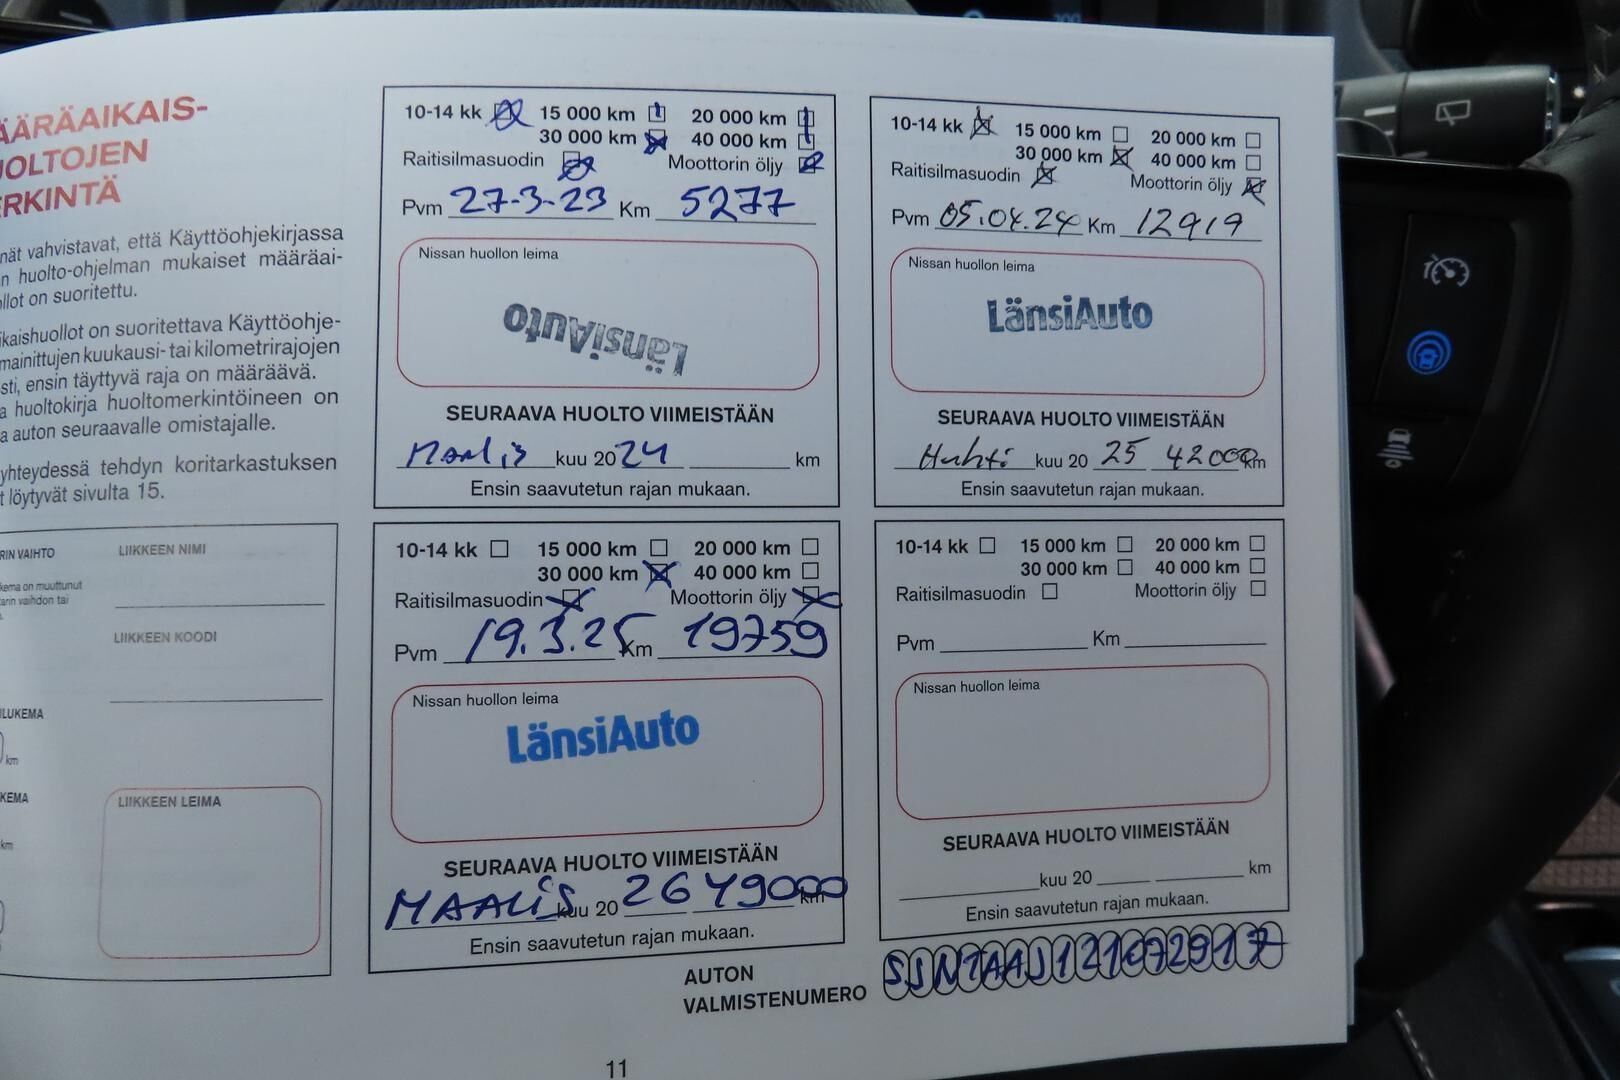 ÄÄRÄAIKAIS-
UOLTOJEN
ERKINTÄ
nät vahvistavat, että Käyttöohjekirjassa
n huolto-ohjelman mukaiset määräai-
llot on suoritettu.
ikaishuollot on suoritettava Käyttöohje-
mainittujen kuukausi- tai kilometrirajojen
sti, ensin täyttyvä raja on määräävä.
a huoltokirja huoltomerkintöineen on
a auton seuraavalle omistajalle.
yhteydessä tehdyn koritarkastuksen
t löytyvät sivulta 15.
RIN VAIHTO
kema on muuttunut
tarin vaihdon tai
LIIKKEEN NIMI
LIIKKEEN KOODI
ILUKEMA
km
KEMA
km
LIIKKEEN LEIMA
10-14 kk 15 000 km 20 000 km
30 000 km 40 000 km
Raitisilmasuodin Moottorin öljy
Pvm 27-3-23 Km 5277
Nissan huollon leima
LänsiAuto
SEURAAVA HUOLTO VIIMEISTÄÄN
Maalis kuu 2024 km
Ensin saavutetun rajan mukaan.
10-14 kk 15 000 km 20 000 km
30 000 km 40 000 km
Raitisilmasuodin Moottorin öljy
Pvm 05.04.24 Km 12919
Nissan huollon leima
LänsiAuto
SEURAAVA HUOLTO VIIMEISTÄÄN
Huhti kuu 20 25 42000 km
Ensin saavutetun rajan mukaan.
10-14 kk 15 000 km 20 000 km
30 000 km 40 000 km
Raitisilmasuodin Moottorin öljy
Pvm 19.3.25 Km 19759
Nissan huollon leima
LänsiAuto
SEURAAVA HUOLTO VIIMEISTÄÄN
MAALIS kuu 20 26 49000 km
Ensin saavutetun rajan mukaan.
10-14 kk 15 000 km 20 000 km
30 000 km 40 000 km
Raitisilmasuodin Moottorin öljy
Pvm Km
Nissan huollon leima
SEURAAVA HUOLTO VIIMEISTÄÄN
kuu 20 km
Ensin saavutetun rajan mukaan.
AUTON
VALMISTENUMERO SJNTAAJ12U1072917
11